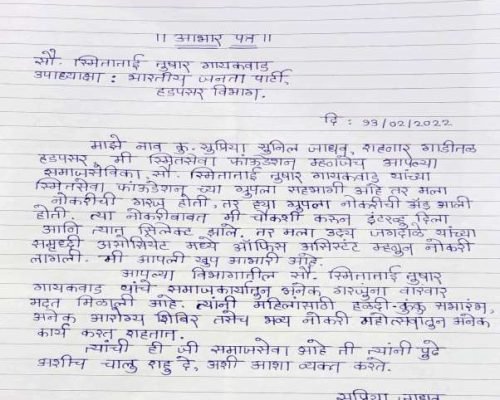 || आभार पत्र ||
सौ. स्मिताताई तुषार गायकवाड
उपाध्याक्षा : भारतीय जनता पार्टी,
हडपसर विभाग.
दि : 11/02/2022
माझे नाव कु. सुप्रिया सुनिल जाधव, राहणार गाडीतळ
हडपसर, मी स्मितसेवा फाऊंडेशन म्हणजेच आपल्या
समाजसेविका, सौ. स्मिताताई तुषार गायकवाड यांच्या
स्मितसेवा फाऊंडेशन च्या ग्रुपला सहभागी आहे तर मला
नोकरीची गरज होती, तर ह्या ग्रुपला नोकरीची अॅड आली
होती. त्या नोकरीबाबत मी चौकशी करून इंटरव्हू दिला
आणि त्यात सिलेक्ट झाले. तर मला उदय जगदाळे यांच्या
समृध्दी असोसिएट मध्ये ऑफिस असिस्टंट म्हणून नोकरी
लागली. मी आपली खुप आभारी आहे.
आपल्या विभागातील सौ. स्मिताताई तुषार
गायकवाड यांचे समाजकार्यातून अनेक गरजुंना वारंवार
मदत मिळाली आहे. त्यांनी महिलांसाठी हळदी-कुंकू समारंभ,
अनेक आरोग्य शिबिर तसेच भव्य नोकरी महोत्सवातून अनेक
कार्य करत राहतात.
त्यांची ही जी समाजसेवा आहे ती त्यांनी पुढे
अशीच चालु राहु दे, अशी आशा व्यक्त करते.
सुप्रिया जाधव